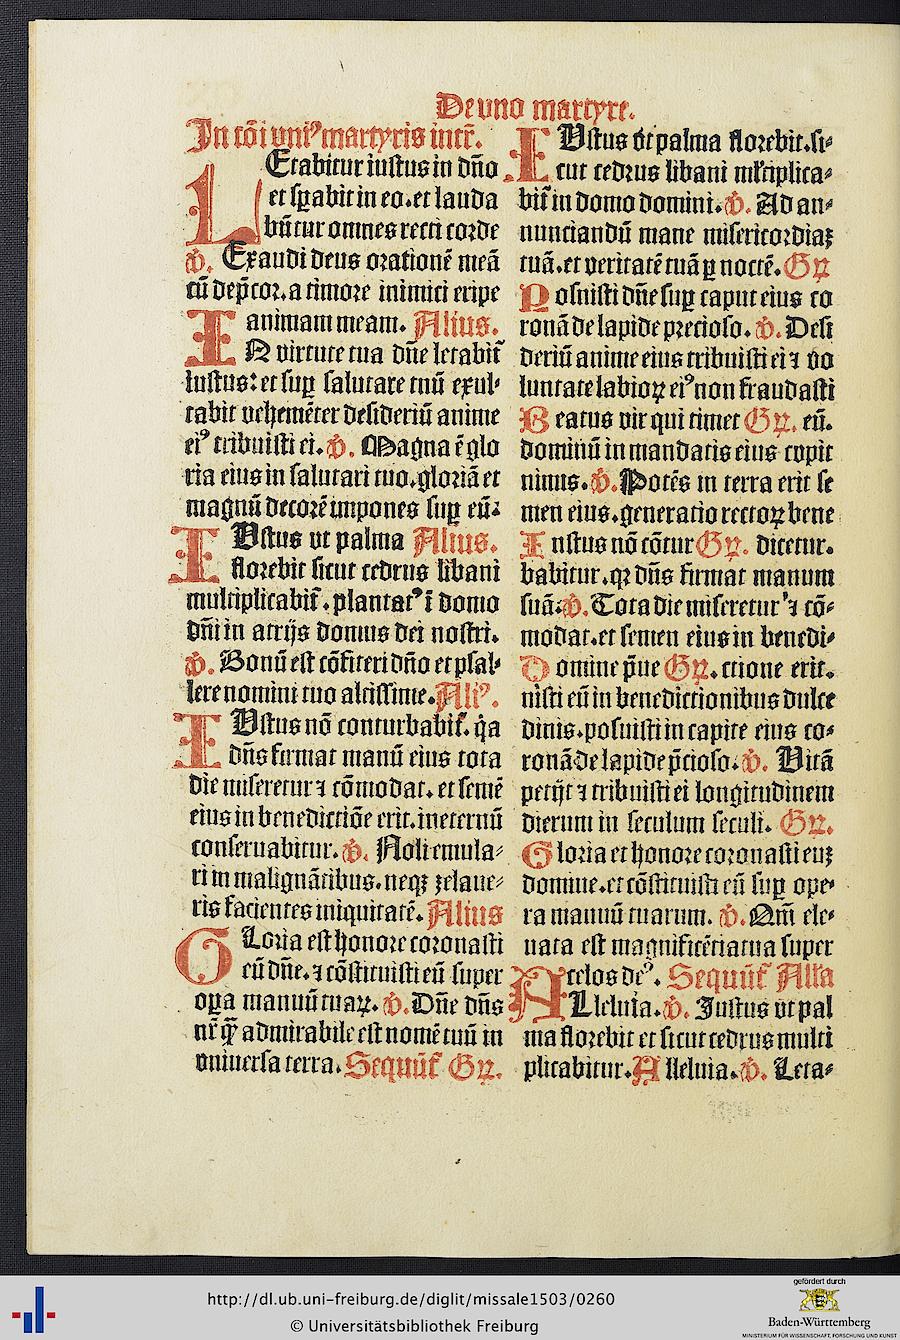 De vno martyre.
In cōi vniꝰ martyris intꝛ̄.
LEtabitur iustus in dn̄o
et sꝑabit in eo. et lauda
būtur omnes recti corde
℣. Exaudi deus orationē meā
cū dep̄cor. a timore inimici eripe
animam meam. Alius.
IN virtute tua dn̄e letabit̄
iustus: et suꝑ salutare tuū exul-
tabit vehemēter desideriū anime
eiꝰ tribuisti ei. ℣. Magna ē glo
ria eius in salutari tuo. gloriā et
magnū decorē impones suꝑ eū:
IUstus vt palma Alius.
florebit sicut cedrus libani
multiplicabit̄. plantatꝰ ī domo
dn̄i in atrijs domus dei nostri.
℣. Bonū est cōfiteri dn̄o et psal-
lere nomini tuo altissime. Aliꝰ.
IUstus nō conturbabit̄. q̇a
dn̄s firmat manū eius tota
die miseretur ⁊ cōmodat. et semē
eius in benedictiōe erit. in eternū
conseruabitur. ℣. Noli emula-
ri in malignātibus. neqꝫ zelaue-
ris facientes iniquitatē. Alius
GLoria est honore coronasti
eū dn̄e. ⁊ cōstituisti eū super
oꝑa manuū tuaꝝ. ℣. Dn̄e dn̄s
nr̄ q̄ꝫ admirabile est nomē tuū in
vniuersa terra. Sequūt̄ Gꝝ.
IUstus vt palma florebit. si-
cut cedrus libani ml̄tiplica-
bit̄ in domo domini. ℣. Ad an-
nunciandū mane misericordiaꝫ
tuā. et veritatē tuā ꝑ noctē. Gꝝ
Posuisti dn̄e suꝑ caput eius co
ronā de lapide precioso. ℣. Desi
deriū anime eius tribuisti ei ⁊ vo
luntate labioꝝ eiꝰ non fraudasti
Beatus vir qui timet Gꝝ. eū.
dominū in mandatis eius cupit
nimis. ℣. Potēs in terra erit se
men eius. generatio rectoꝝ bene
Iustus nō cōtur Gꝝ. dicetur.
babitur. qꝛ dn̄s firmat manum
suā: ℣. Tota die miseretur ⁊ cō-
modat. et semen eius in benedi-
Domine p̄ue Gꝝ. ctione erit.
nisti eū in benedictionibus dulce
dinis. posuisti in capite eius co-
ronā de lapide p̄cioso. ℣. Uitā
petijt ⁊ tribuisti ei longitudinem
dierum in seculum seculi. Gꝝ.
Gloria et honore coronasti euꝫ
domine. et cōstituisti eū suꝑ ope-
ra manuū tuarum. ℣. Qm̄ ele-
uata est magnificētia tua super
celos deꝰ. Sequūt̄ All'a
ALleluia. ℣. Iustus vt pal
ma florebit et sicut cedrus multi
plicabitur. Alleluia. ℣. Leta-
http://dl.ub.uni-freiburg.de/diglit/missale1503/0260
© Universitätsbibliothek Freiburg
gefördert durch
Baden-Württemberg
MINISTERIUM FÜR WISSENSCHAFT, FORSCHUNG UND KUNST